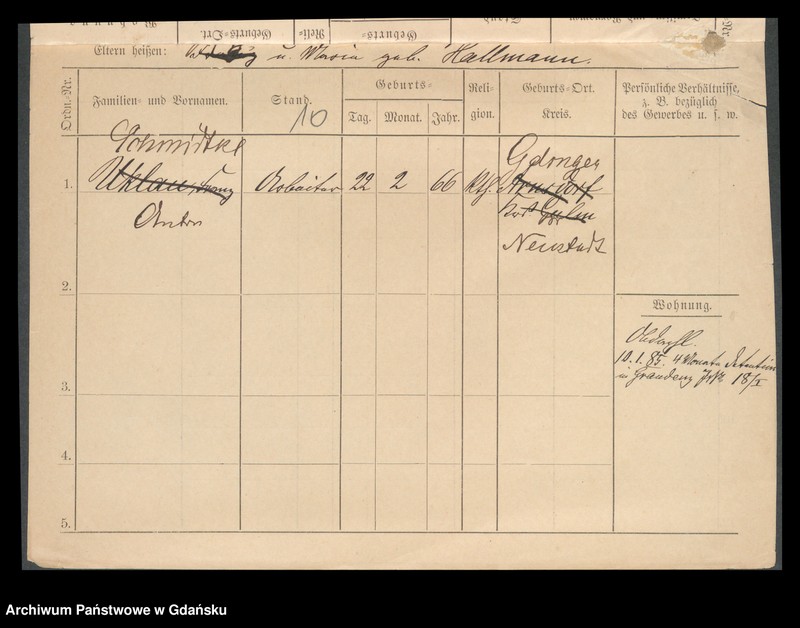 Eltern heißen: u. Maria geb. Hallmann.
Ordn.-Nr.
Familien- und Vornamen.
Stand.
10
Geburts-
Tag.
Monat.
Jahr.
Reli-
gion.
Geburts-Ort.
Kreis.
Persönliche Verhältnisse,
z. B. bezüglich
des Gewerbes u. s. w.
Schmidtke
1. Uklau, Franz Arbeiter 22 2 66 kth.
Anton
Gdongen
Arnsdorf
Culm
Neustadt
2.
Wohnung.
Obdachl.
10.1.85. 4 Monate Detention
in Graudenz 18/I
3.
4.
5.
Archiwum Państwowe w Gdańsku